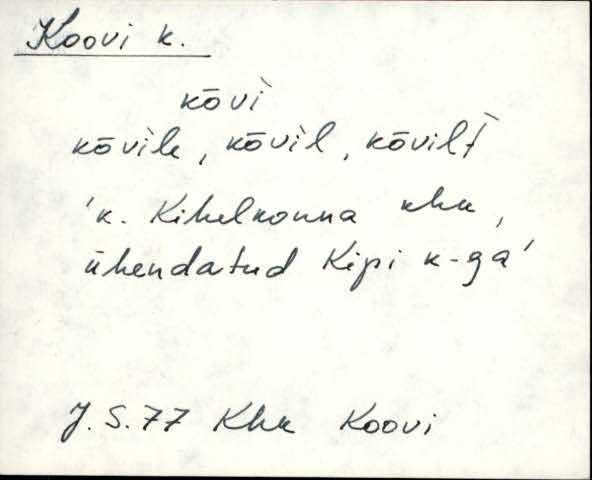 Koovi k.
kōvì
kōvile, kōvìl, kōvilt̄
'k. Kihelkonna khk,
ühendatud Kipi k-ga'
J. S. 77 Khk Koovi